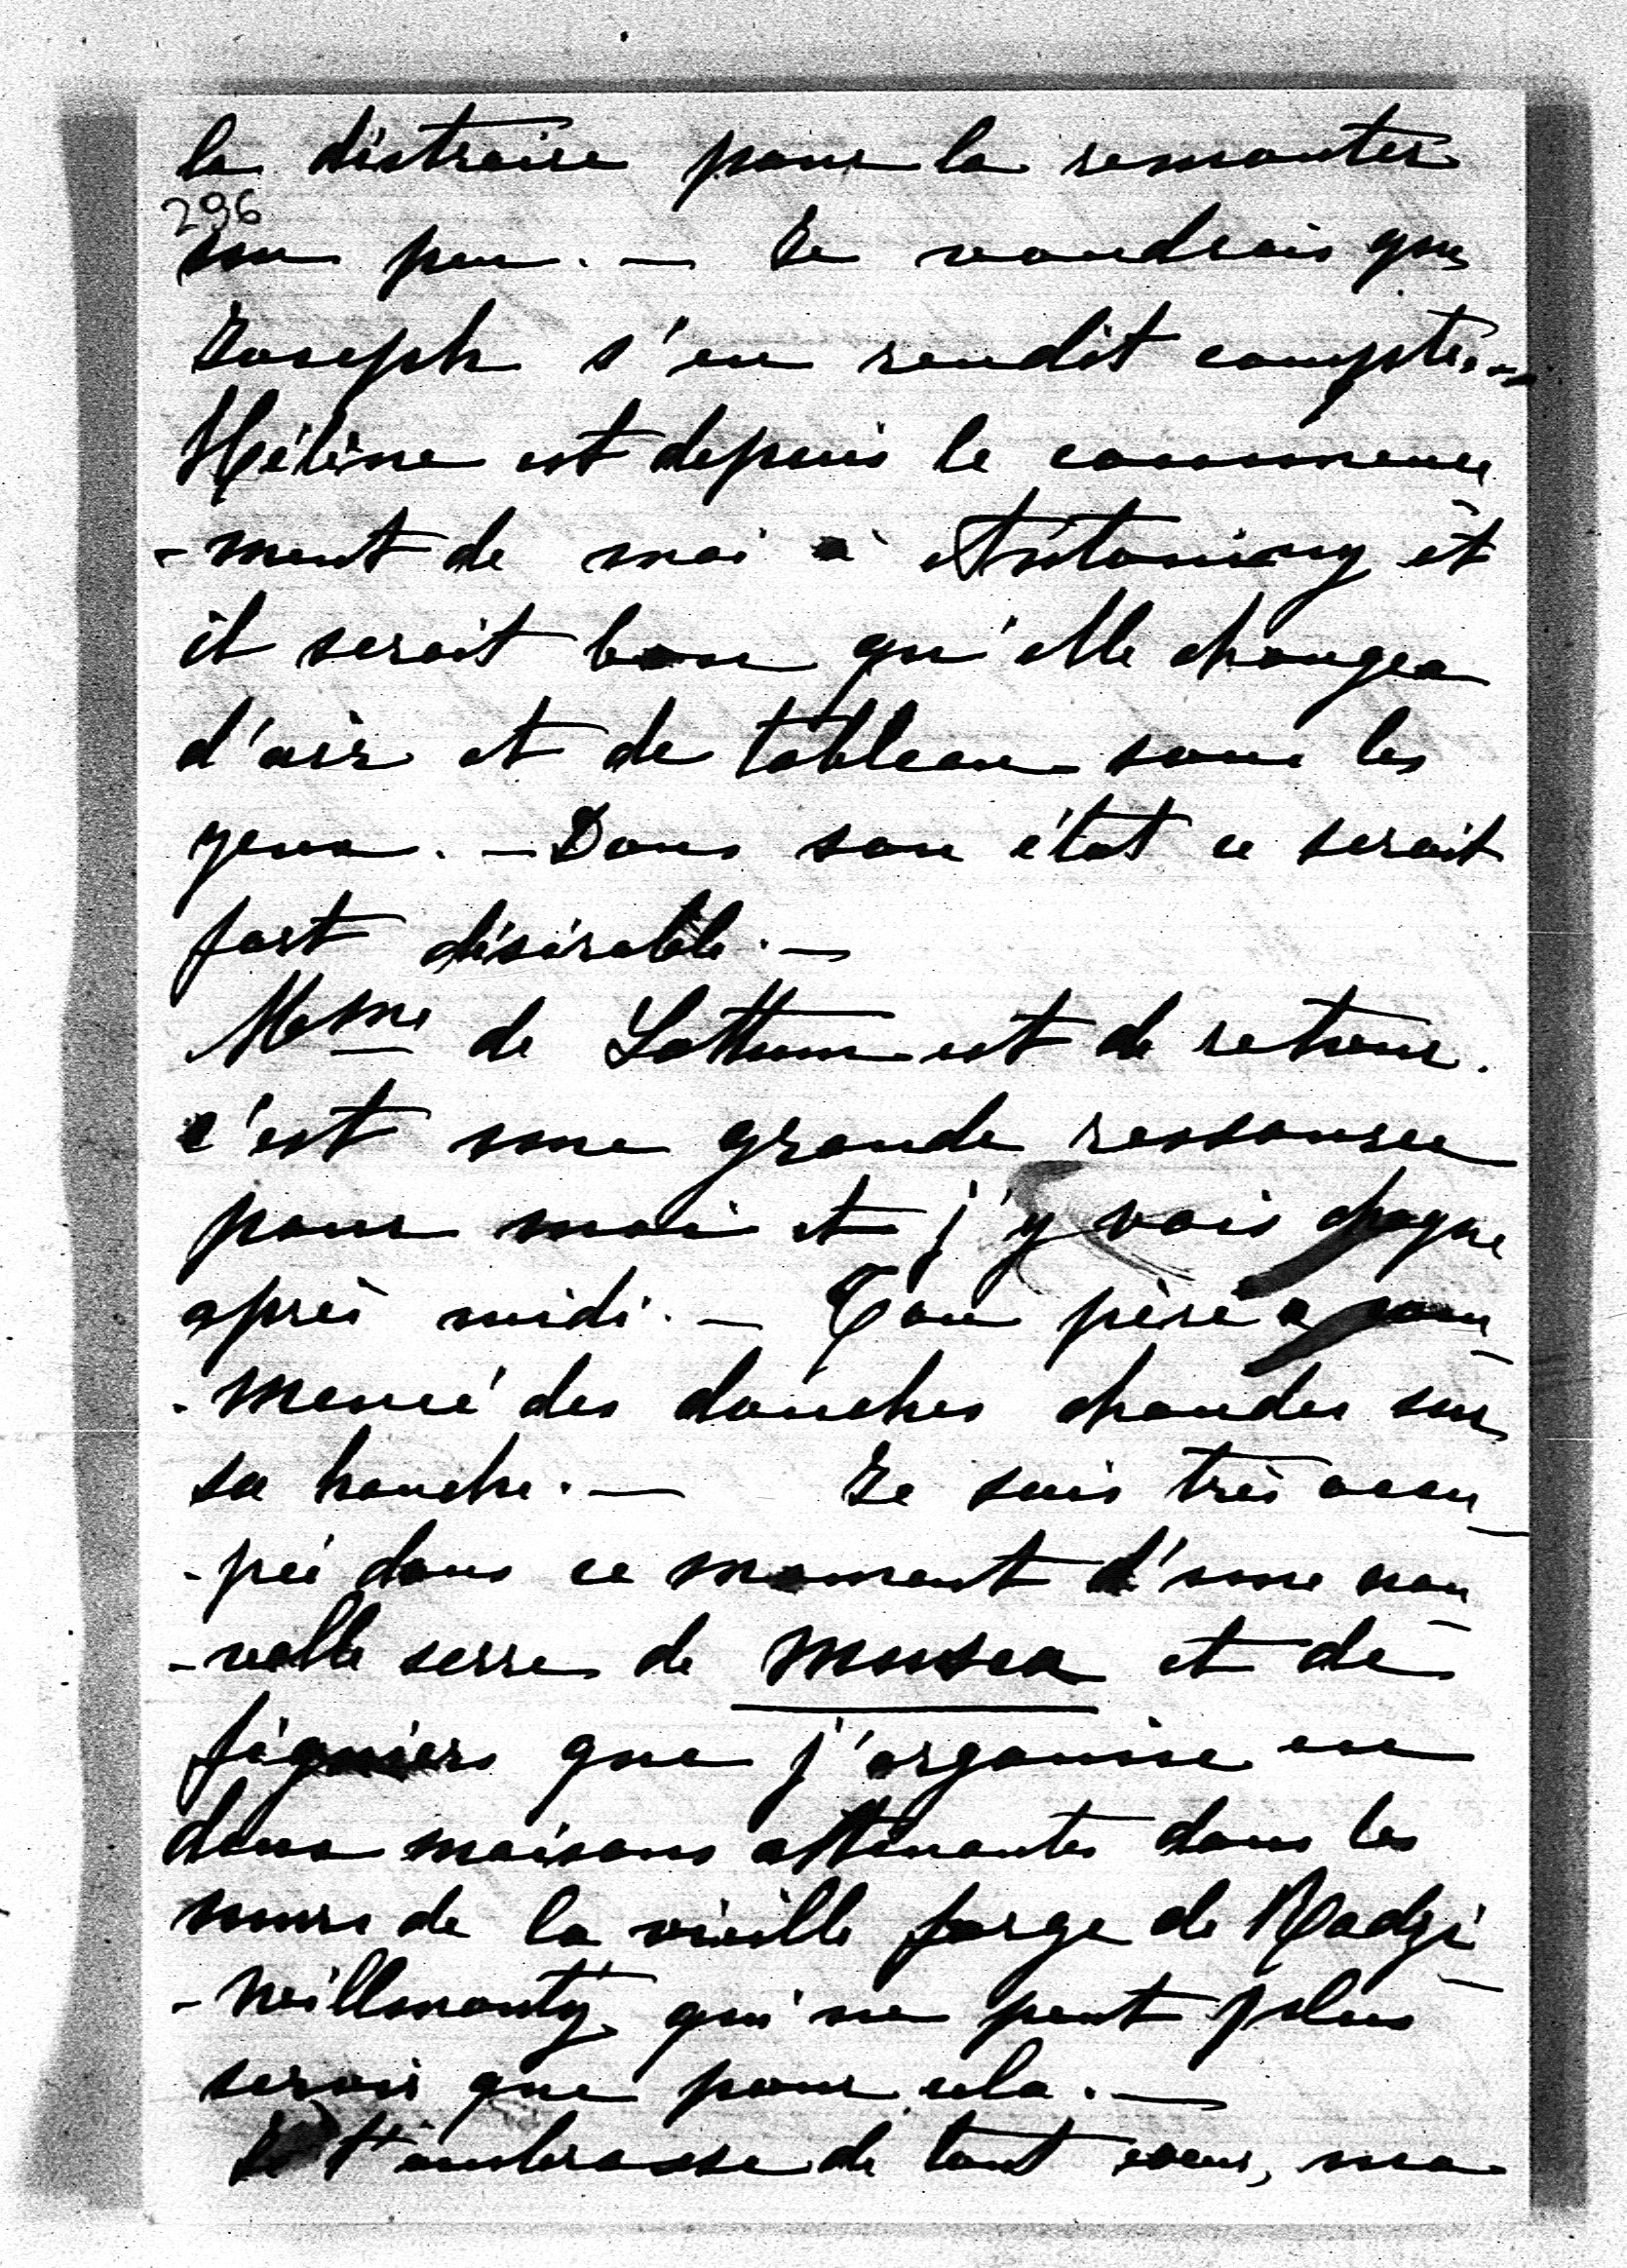 la distraire pour la remonter
296
un peu. — Je voudrais que
Joseph s'en rendit compte. —
Hélène est depuis le commence
-ment de mai à Antoniny et
il serait bon qu'elle changea
d'air et de tableau sous les
yeux. — Dans son état ce serait
fort désirable. —
Mme de Lottum est de retour.
c'est une grande ressource
pour moi et j'y vais chaque
après midi. — Ton père a com-
-mencé des douches chaudes sur
sa hanche. — Je suis très occu-
-pée dans ce moment d'une nou-
-velle serre de musea et de
figuiers que j'organise en
deux maisons attenantes dans les
murs de la vieille forge de Radzi-
-willmonty qui ne peut plus
servir que pour cela. —
Je t'embrasse de tout cœur, ma